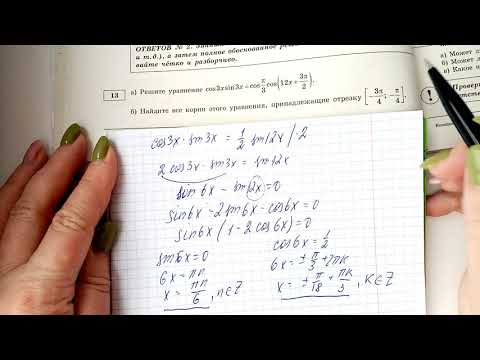 ОТВЕТОВ № 2. Запиши
и т.д.), а затем полное обоснованное реше
вайте чётко и разборчиво.
13 а) Решите уравнение cos3xsin3x = cos π/3 cos(12x + 3π/2).
б) Найдите все корни этого уравнения, принадлежащие отрезку [-3π/4; -π/4].
а) Может л
б) Может л
в) Какое н
! Провер
ответств
cos3x · sin3x = 1/2 sin12x / · 2
2 cos3x · sin3x = sin12x
sin6x - sin12x = 0
sin6x - 2sin6x · cos6x = 0
sin6x (1 - 2cos6x) = 0
sin6x = 0
6x = πn
x = πn/6, n∈Z
cos6x = 1/2
6x = ±π/3 + 2πk
x = ±π/18 + πk/3, k∈Z